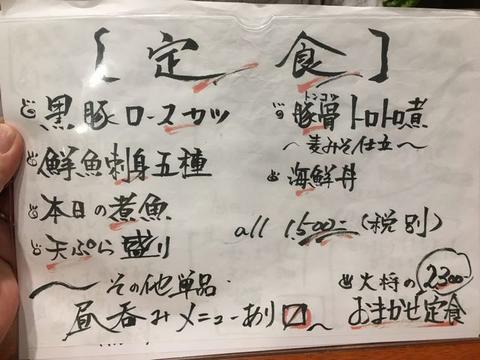 [定食]
黒豚ロースカツ
鮮魚刺身五種
本日の煮魚
天ぷら盛り
豚骨トロトロ煮
トンコツ
〜麦みそ仕立〜
海鮮丼
all 1,500-(税別)
大将の 2300-
おまかせ定食
〜その他単品.
昼呑みメニューあり〼〜